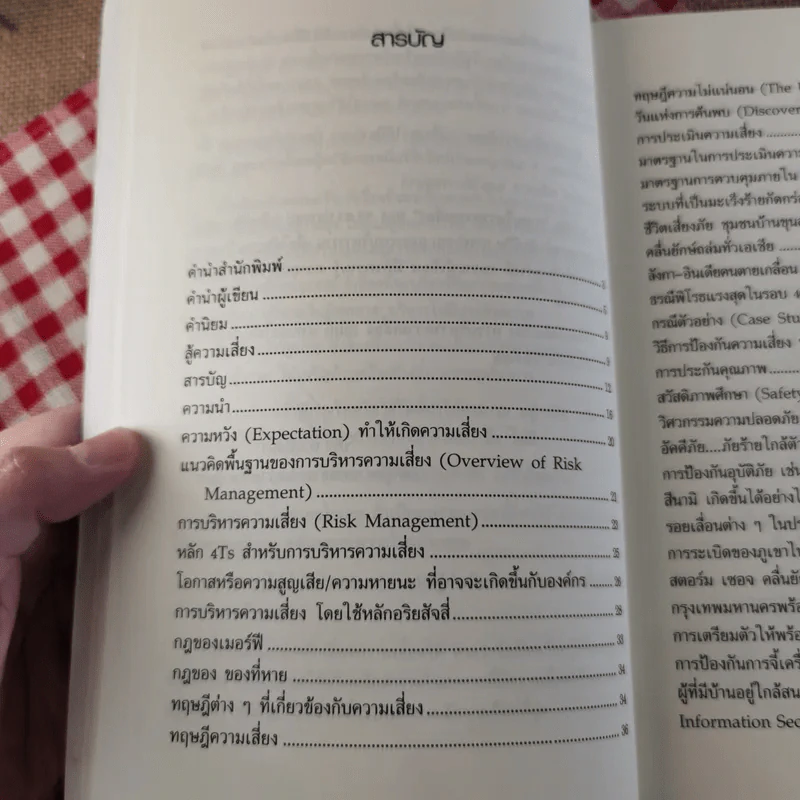 สารบัญ
คำนำสำนักพิมพ์
คำนำผู้เขียน
คำนิยม
สู้ความเสี่ยง
สารบัญ 12
ความนำ 16
ความหวัง (Expectation) ทำให้เกิดความเสี่ยง 20
แนวคิดพื้นฐานของการบริหารความเสี่ยง (Overview of Risk
Management)
การบริหารความเสี่ยง (Risk Management)
หลัก 4Ts สำหรับการบริหารความเสี่ยง
โอกาสหรือความสูญเสีย/ความหายนะ ที่อาจจะเกิดขึ้นกับองค์กร
การบริหารความเสี่ยง โดยใช้หลักอริยสัจสี่
กฎของเมอร์ฟี 33
กฎของ ของที่หาย 34
ทฤษฎีต่าง ๆ ที่เกี่ยวข้องกับความเสี่ยง 34
ทฤษฎีความเสี่ยง 36
ทฤษฎีความไม่แน่นอน (The
วันแห่งการค้นพบ (Discover
การประเมินความเสี่ยง
มาตรฐานในการประเมินความ
มาตรฐานการควบคุมภายใน
ระบบที่เป็นมะเร็งร้ายกัดกร่อ
ชีวิตเสี่ยงภัย ชุมชนบ้านขุน
คลื่นยักษ์ถล่มทั่วเอเชีย
ลังกา-อินเดียคนตายเกลื่อน
ธรณีพิโรธแรงสุดในรอบ 4
กรณีตัวอย่าง (Case Stu
วิธีการป้องกันความเสี่ยง
การประกันคุณภาพ
สวัสดิภาพศึกษา (Safety
วิศวกรรมความปลอดภัย
อัคคีภัย....ภัยร้ายใกล้ตัว
การป้องกันอุบัติภัย เช่น
สึนามิ เกิดขึ้นได้อย่างไ
รอยเลื่อนต่าง ๆ ในประ
การระเบิดของภูเขาไ
สตอร์ม เซอจ คลื่นยั
กรุงเทพมหานครพร้อ
การเตรียมตัวให้พร้อ
การป้องกันการจี้เครื่
ผู้ที่มีบ้านอยู่ใกล้สน
Information Sec